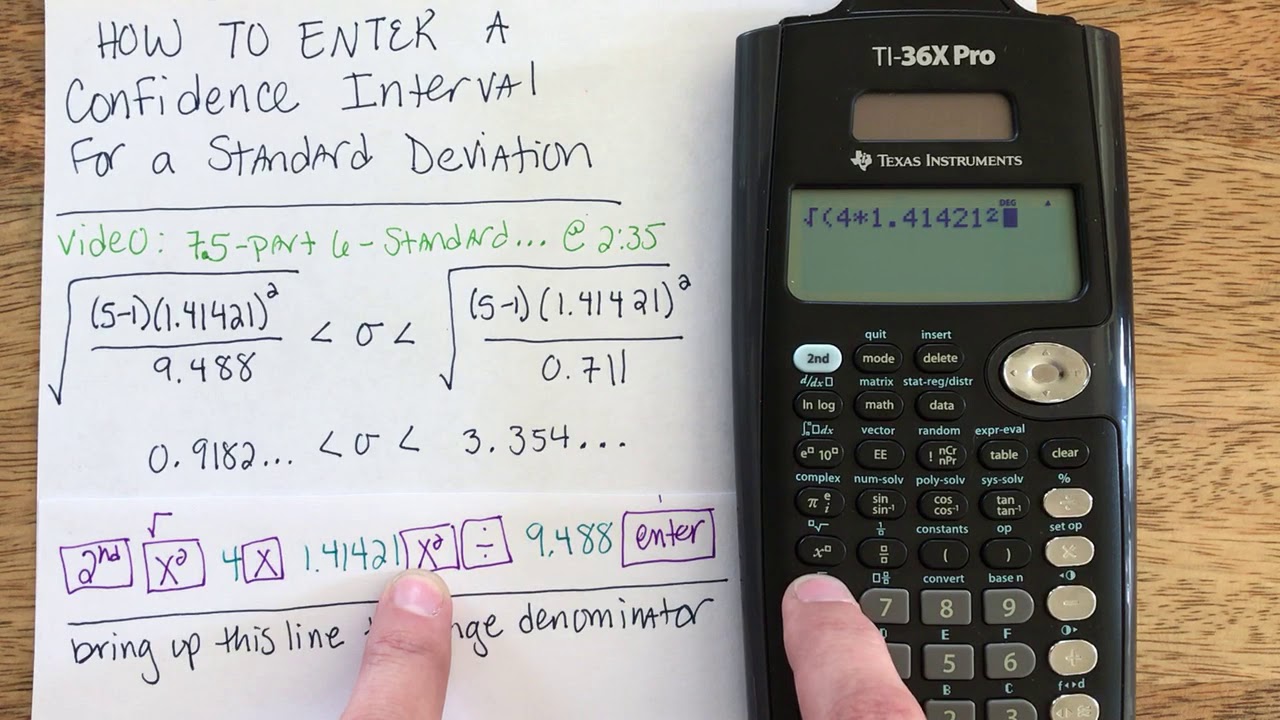 HOW TO ENTER A
Confidence Interval
For a Standard Deviation
Video: 7.5-part 6-Standard... @ 2:35
√((5-1)(1.41421)²/9.488) < σ < √((5-1)(1.41421)²/0.711)
0.9182... < σ < 3.354...
√
2nd X² 4 X 1.41421 X² ÷ 9.488 enter
bring up this line denominator
TI-36X Pro
TEXAS INSTRUMENTS
DEG
√(4*1.41421²
quit insert
2nd mode delete
d/dx□ matrix stat-reg/distr
ln log math data
∫□dx vector random expr-eval
e□ 10□ EE ! nCr nPr table clear
complex num-solv poly-solv sys-solv %
π e i sin sin⁻¹ cos cos⁻¹ tan tan⁻¹ ÷
□√ constants op set op
x□ □/□ ( ) ×
convert base n
7 8 9 −
E F
5 6 +
B C f◂▸d
2 3